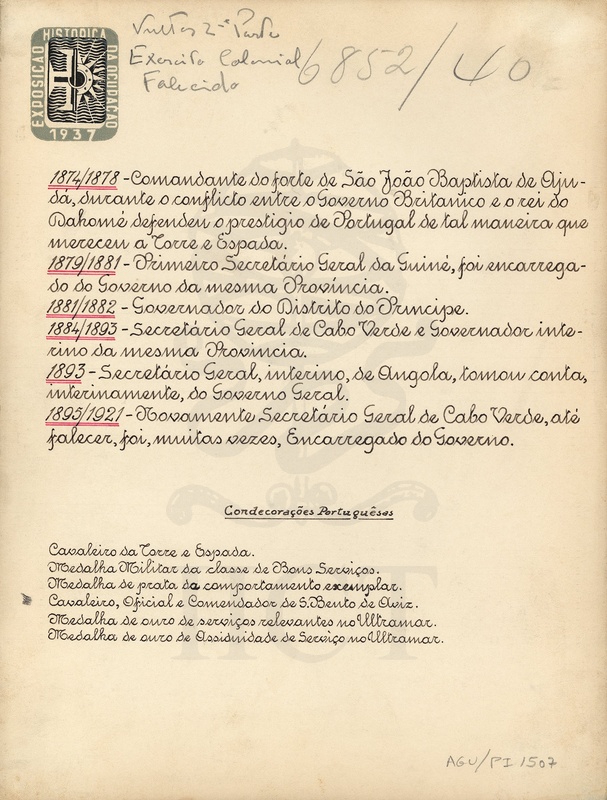 EXPOSIÇÃO HISTÓRICA DA OCUPAÇÃO
1937
Vultos 2ª Parte
Exercito Colonial
Falecido
6852/40
1874/1878 - Comandante do forte de São João Baptista de Aju-
dá, durante o conflicto entre o Governo Britanico e o rei do
Dahomé defendeu o prestigio de Portugal de tal maneira que
mereceu a Torre e Espada.
1879/1881 - Primeiro Secretário Geral da Guiné, foi encarrega-
do do Governo da mesma Provincia.
1881/1882 - Governador do Distrito do Principe.
1884/1893 - Secretário Geral de Cabo Verde e Governador inte-
rino da mesma Provincia.
1893 - Secretário Geral, interino, de Angola, tomou conta,
interinamente, do Governo Geral.
1895/1921 - Novamente Secretário Geral de Cabo Verde, até
falecer, foi, muitas vezes, Encarregado do Governo.
Condecorações Portuguêsas
Cavaleiro da Torre e Espada.
Medalha Militar da classe de Bons Serviços.
Medalha de prata da comportamento exemplar.
Cavaleiro, Oficial e Comendador de S. Bento de Aviz.
Medalha de ouro de serviços relevantes no Ultramar.
Medalha de ouro de Assiduidade de Serviço no Ultramar.
AGU/PI 1507